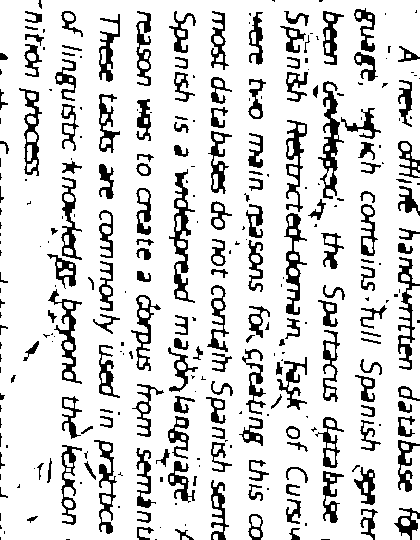 A new offline handwritten database for
guage, which contains full Spanish senten
been developed: the Spartacus database
Spanish Restricted-domain Task of Cursiv
were two main reasons for creating this co
most databases do not contain Spanish sente
Spanish is a widespread major language.
reason was to create a corpus from semanti
These tasks are commonly used in practice
of linguistic knowledge beyond the lexicon
nition process.